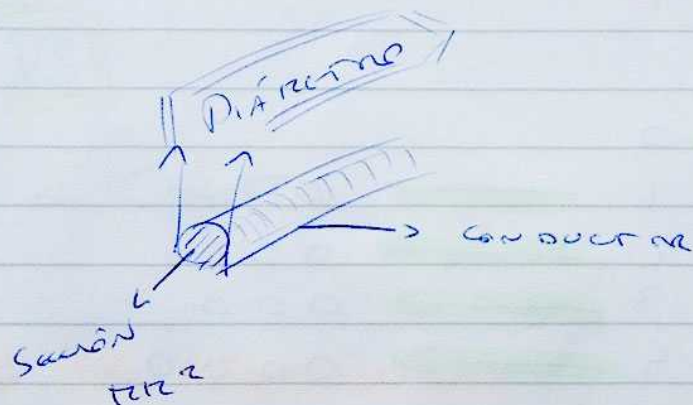 DIÁMETRO
CONDUCTOR
SECCIÓN
mm²